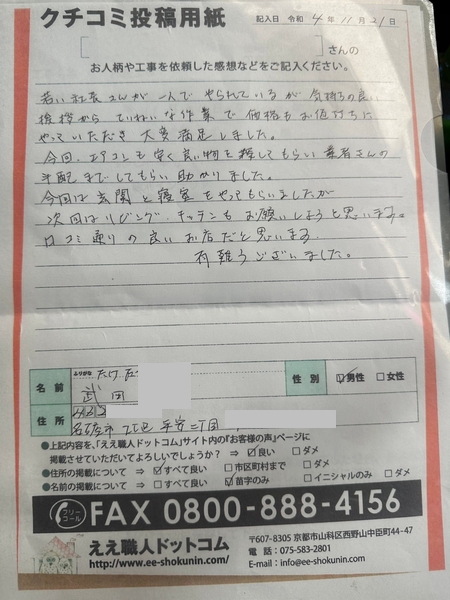 クチコミ投稿用紙
記入日 令和 4年 11月 21日
[ ]さんの
お人柄や工事を依頼した感想などをご記入ください。
若い社長さんが一人でやられているが 気持ちの良い
挨拶から ていねいな作業で価格もお値打ちに
やっていただき 大変満足しました。
今回、エアコンも安く良い物を探してもらい 業者さんの
手配までしてもらい 助かりました。
今回は玄関と寝室をやってもらいましたが
次回はリビング、キッチンもお願いしようと思います。
口コミ通りの良いお店だと思います。
有難うございました。
ふりがな
名前 武田
性別 ☑男性 □女性
住所 名古屋市
●上記内容を、「ええ職人ドットコム」サイト内の『お客様の声』ページに
掲載させていただいてよろしいでしょうか? ⇒ ☑良い □ダメ
●住所の掲載について ⇒ ☑すべて良い □市区町村まで □ダメ
●名前の掲載について ⇒ □すべて良い ☑苗字のみ □イニシャルのみ □ダメ
フリーコール FAX 0800-888-4156
ええ職人ドットコム
http://www.ee-shokunin.com/
〒607-8305 京都市山科区西野山中臣町44-47
電話:075-583-2801
E-mail:info@ee-shokunin.com